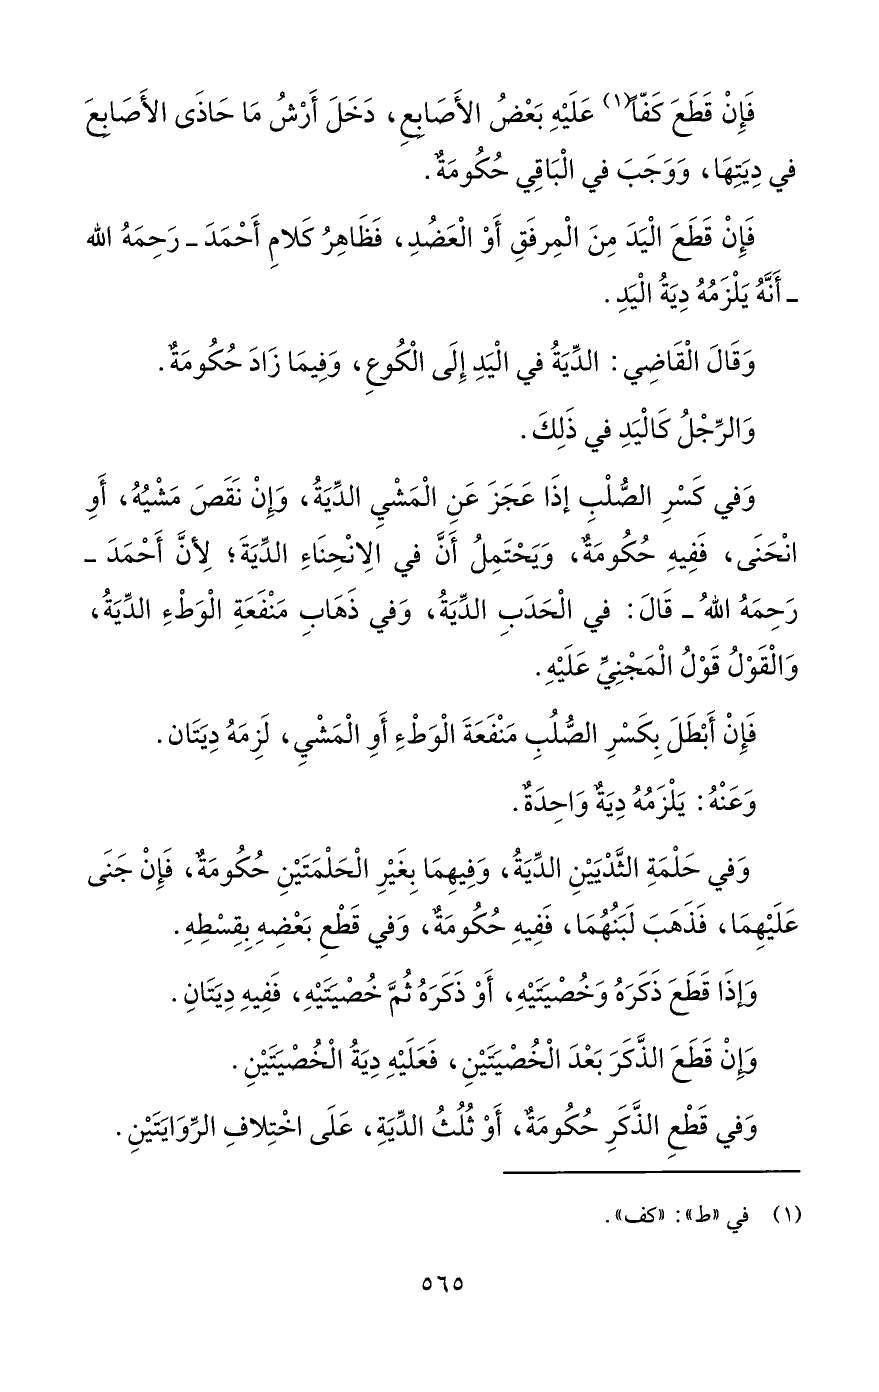 فَإِنْ قَطَعَ كَفّاً(١) عَلَيْهِ بَعْضُ الأَصَابِعِ، دَخَلَ أَرْشُ مَا حَاذَى الأَصَابِعَ
في دِيَتِهَا، وَوَجَبَ في الْبَاقِي حُكُومَةٌ.
فَإِنْ قَطَعَ الْيَدَ مِنَ الْمِرفَقِ أَوْ الْعَضُدِ، فَظَاهِرُ كَلامِ أَحْمَدَ ـ رَحِمَهُ الله
ـ أَنَّهُ يَلْزَمُهُ دِيَةُ الْيَدِ.
وَقَالَ الْقَاضِي: الدِّيَةُ في الْيَدِ إِلَى الْكُوعِ، وَفِيمَا زَادَ حُكُومَةٌ.
وَالرِّجْلُ كَالْيَدِ في ذَلِكَ.
وَفي كَسْرِ الصُّلْبِ إذَا عَجَزَ عَنِ الْمَشْيِ الدِّيَةُ، وَإِنْ نَقَصَ مَشْيُهُ، أَوِ
انْحَنَى، فَفِيهِ حُكُومَةٌ، وَيَحْتَمِلُ أَنَّ في الِانْحِنَاءِ الدِّيَةَ؛ لِأنَّ أَحْمَدَ ـ
رَحِمَهُ اللهُ ـ قَالَ: في الْحَدَبِ الدِّيَةُ، وَفي ذَهَابِ مَنْفَعَةِ الْوَطْءِ الدِّيَةُ،
وَالْقَوْلُ قَوْلُ الْمَجْنِيِّ عَلَيْهِ.
فَإِنْ أَبْطَلَ بِكَسْرِ الصُّلُبِ مَنْفَعَةَ الْوَطْءِ أَوِ الْمَشْيِ، لَزِمَهُ دِيَتَان.
وَعَنْهُ: يَلْزَمُهُ دِيَةٌ وَاحِدَةٌ.
وَفي حَلْمَةِ الثَّدْيَيْنِ الدِّيَةُ، وَفِيهِمَا بِغَيْرِ الْحَلْمَتَيْنِ حُكُومَةٌ، فَإِنْ جَنَى
عَلَيْهِمَا، فَذَهَبَ لَبَنُهُمَا، فَفِيهِ حُكُومَةٌ، وَفي قَطْعِ بَعْضِهِ بِقِسْطِهِ.
وَإذَا قَطَعَ ذَكَرَهُ وَخُصْيَتَيْهِ، أَوْ ذَكَرَهُ ثُمَّ خُصْيَتَيْهِ، فَفِيهِ دِيَتَانِ.
وَإِنْ قَطَعَ الذَّكَرَ بَعْدَ الْخُصْيَتَيْنِ، فَعَلَيْهِ دِيَةُ الْخُصْيَتَيْنِ.
وَفي قَطْعِ الذَّكَرِ حُكُومَةٌ، أَوْ ثُلُثُ الدِّيَةِ، عَلَى اخْتِلافِ الرِّوَايَتَيْنِ.
(١) في «ط»: «كف».
٥٦٥